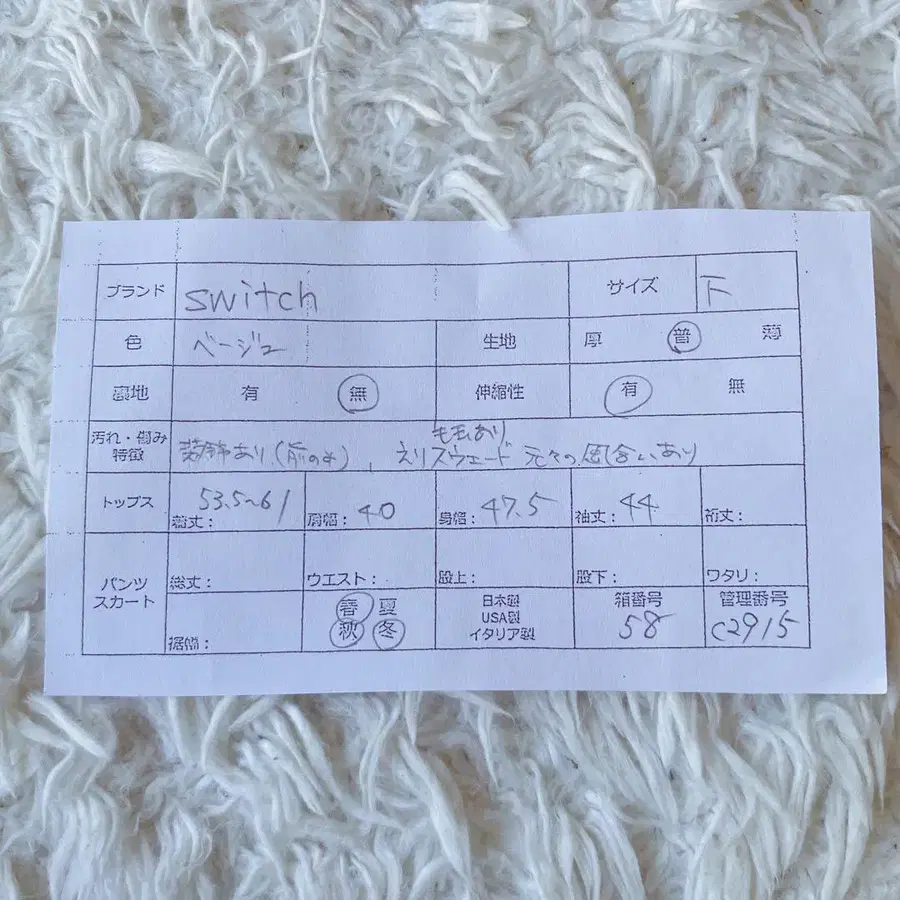 ブランド switch サイズ F
色 ベージュ 生地 厚 普 薄
裏地 有 無 伸縮性 有 無
毛玉あり
汚れ・傷み 特徴 装飾あり(前のみ)、えりスウェード 元々の風合いあり
トップス 着丈: 53.5~61 肩幅: 40 身幅: 47.5 袖丈: 44 裄丈:
パンツ スカート 総丈: ウエスト: 股上: 股下: ワタリ:
裾幅: 春 夏 秋 冬 日本製 USA製 イタリア製 箱番号 58 管理番号 C2915